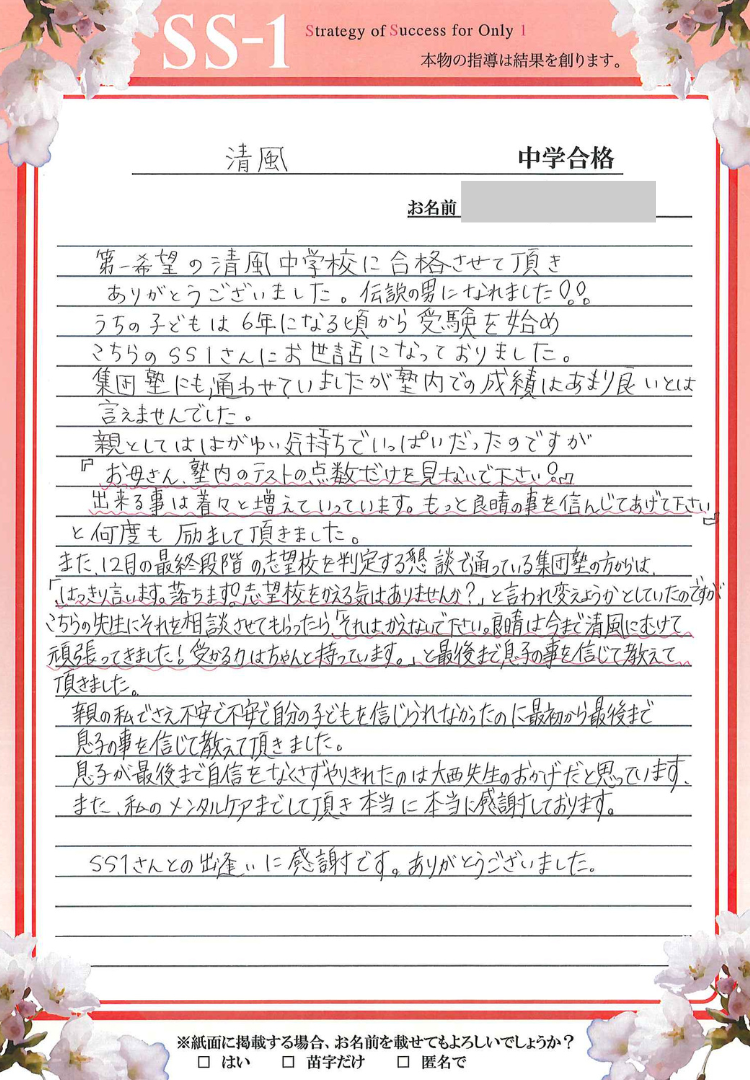 SS-1
Strategy of Success for Only 1
本物の指導は結果を創ります。
清風 中学合格
お名前
第一希望の清風中学校に合格させて頂き
ありがとうございました。伝説の男になれました!!
うちの子どもは6年になる頃から受験を始め
こちらのSS1さんにお世話になっておりました。
集団塾にも通わせていましたが塾内での成績はあまり良いとは
言えませんでした。
親としてははがゆい気持ちでいっぱいだったのですが
『お母さん、塾内のテストの点数だけを見ないで下さい!』
出来る事は着々と増えていっています。もっと良晴の事を信んじてあげて下さい』
と何度も励まして頂きました。
また、12月の最終段階の志望校を判定する懇談で通っている集団塾の方からは、
「はっきり言います。落ちます。志望校をかえる気はありませんか?」と言われ変えようかとしていたのですが
こちらの先生にそれを相談させてもらったら「それはかえないで下さい。良晴は今まで清風にむけて
頑張ってきました!受かる力はちゃんと持っています。」と最後まで息子の事を信じて教えて
頂きました。
親の私でさえ不安で不安で自分の子どもを信じられなかったのに最初から最後まで
息子の事を信じて教えて頂きました。
息子が最後まで自信をなくさずやりきれたのは大西先生のおかげだと思っています、
また、私のメンタルケアまでして頂き本当に本当に感謝しております。
SS1さんとの出逢いに感謝です。ありがとうございました。
※紙面に掲載する場合、お名前を載せてもよろしいでしょうか?
□ はい □ 苗字だけ □ 匿名で